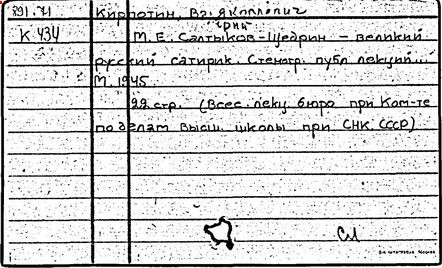 891.71 Кирпотин, Вл. Яковлевич
К 434 М. Е. Салтыков-Щедрин – великий
русский сатирик. Стеногр. публ. лекции...
М. 1945
22 стр. (Всес. лекц. бюро при Ком-те
по делам высш. школы при СНК СССР)
СЛ